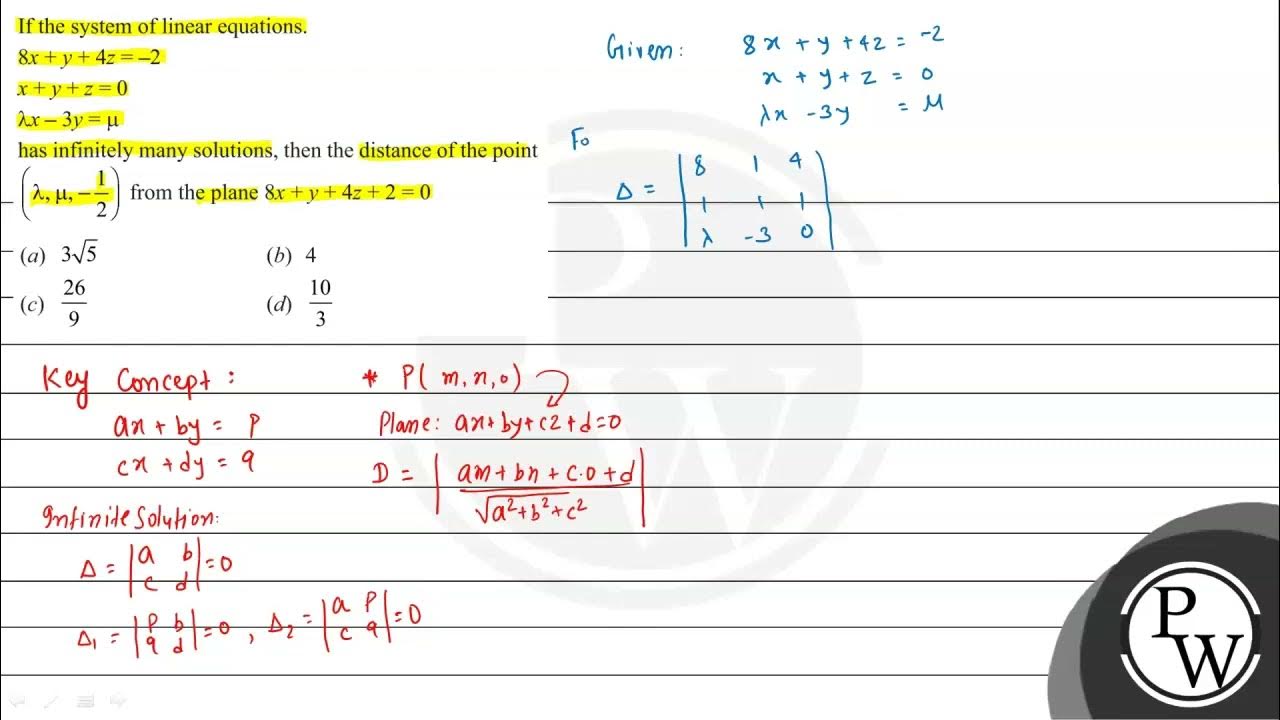 If the system of linear equations.
8x + y + 4z = –2
x + y + z = 0
λx – 3y = μ
has infinitely many solutions, then the distance of the point
(λ, μ, –1/2) from the plane 8x + y + 4z + 2 = 0
(a) 3√5 (b) 4
(c) 26/9 (d) 10/3
Given: 8x + y + 4z = -2
x + y + z = 0
λx - 3y = μ
Fo
Δ = | 8 1 4 |
| 1 1 1 |
| λ -3 0 |
Key Concept:
ax + by = p
cx + dy = q
Infinite Solution:
Δ = |a b| = 0
|c d|
Δ1 = |p b| = 0, Δ2 = |a p| = 0
|q d| |c q|
* P(m, n, o)
Plane: ax + by + cz + d = 0
D = | am + bn + c·o + d |
√a² + b² + c²
PW
PW